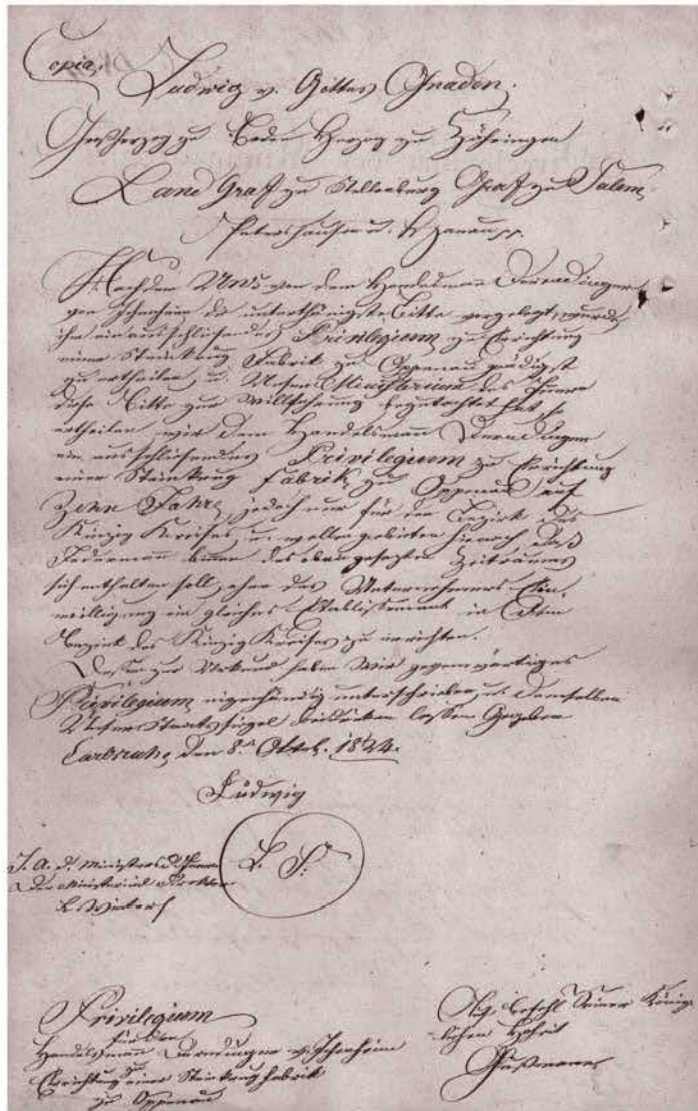 Copia.
Ludwig v. Gottes Gnaden,
Großherzog zu Baden Herzog zu Zähringen
Land Graf zu Nellenburg Graf zu Salem,
Petershausen u. Hanau pp.
Nachdem Uns von dem Handelsmann Derndinger
von Ichenheim die unterthänigste Bitte vorgelegt wurde,
ihm ein ausschließendes Privilegium zu Errichtung
einer Steinkrug Fabrik zu Oppenau gnädigst
zu ertheilen, u. Unser Ministerium des Innern
diese Bitte zur Willfahrung begutachtet hat, so
ertheilen wir dem Handelsmann Derndinger
ein ausschließendes Privilegium zu Errichtung
einer Steinkrug Fabrik zu Oppenau auf
Zehn Jahre, jedoch nur für den Bezirk des
Kinzig Kreises, u. wollen gebieten hienach daß
Jedermann binnen des oben gesezten Zeitraumes
sich enthalten soll, ohne des Unternehmers Ein-
willigung ein gleiches Etablissement in dem
Bezirk des Kinzig Kreises zu errichten.
Dessen zur Urkund haben Wir gegenwärtiges
Privilegium eigenhändig unterschrieben, u. demselben
Unser Staatssiegel beidrücken lassen Gegeben
Carlsruhe den 8. Oktob. 1824.
Ludwig
L. S.
I. A. d. Ministers d. Innern
Der Ministerial Direktor
L. Winter
Privilegium
für den
Handelsmann Derndinger v. Ichenheim
Errichtung einer Steinkrug Fabrik
zu Oppenau
Auf Befehl Seiner König-
lichen Hoheit